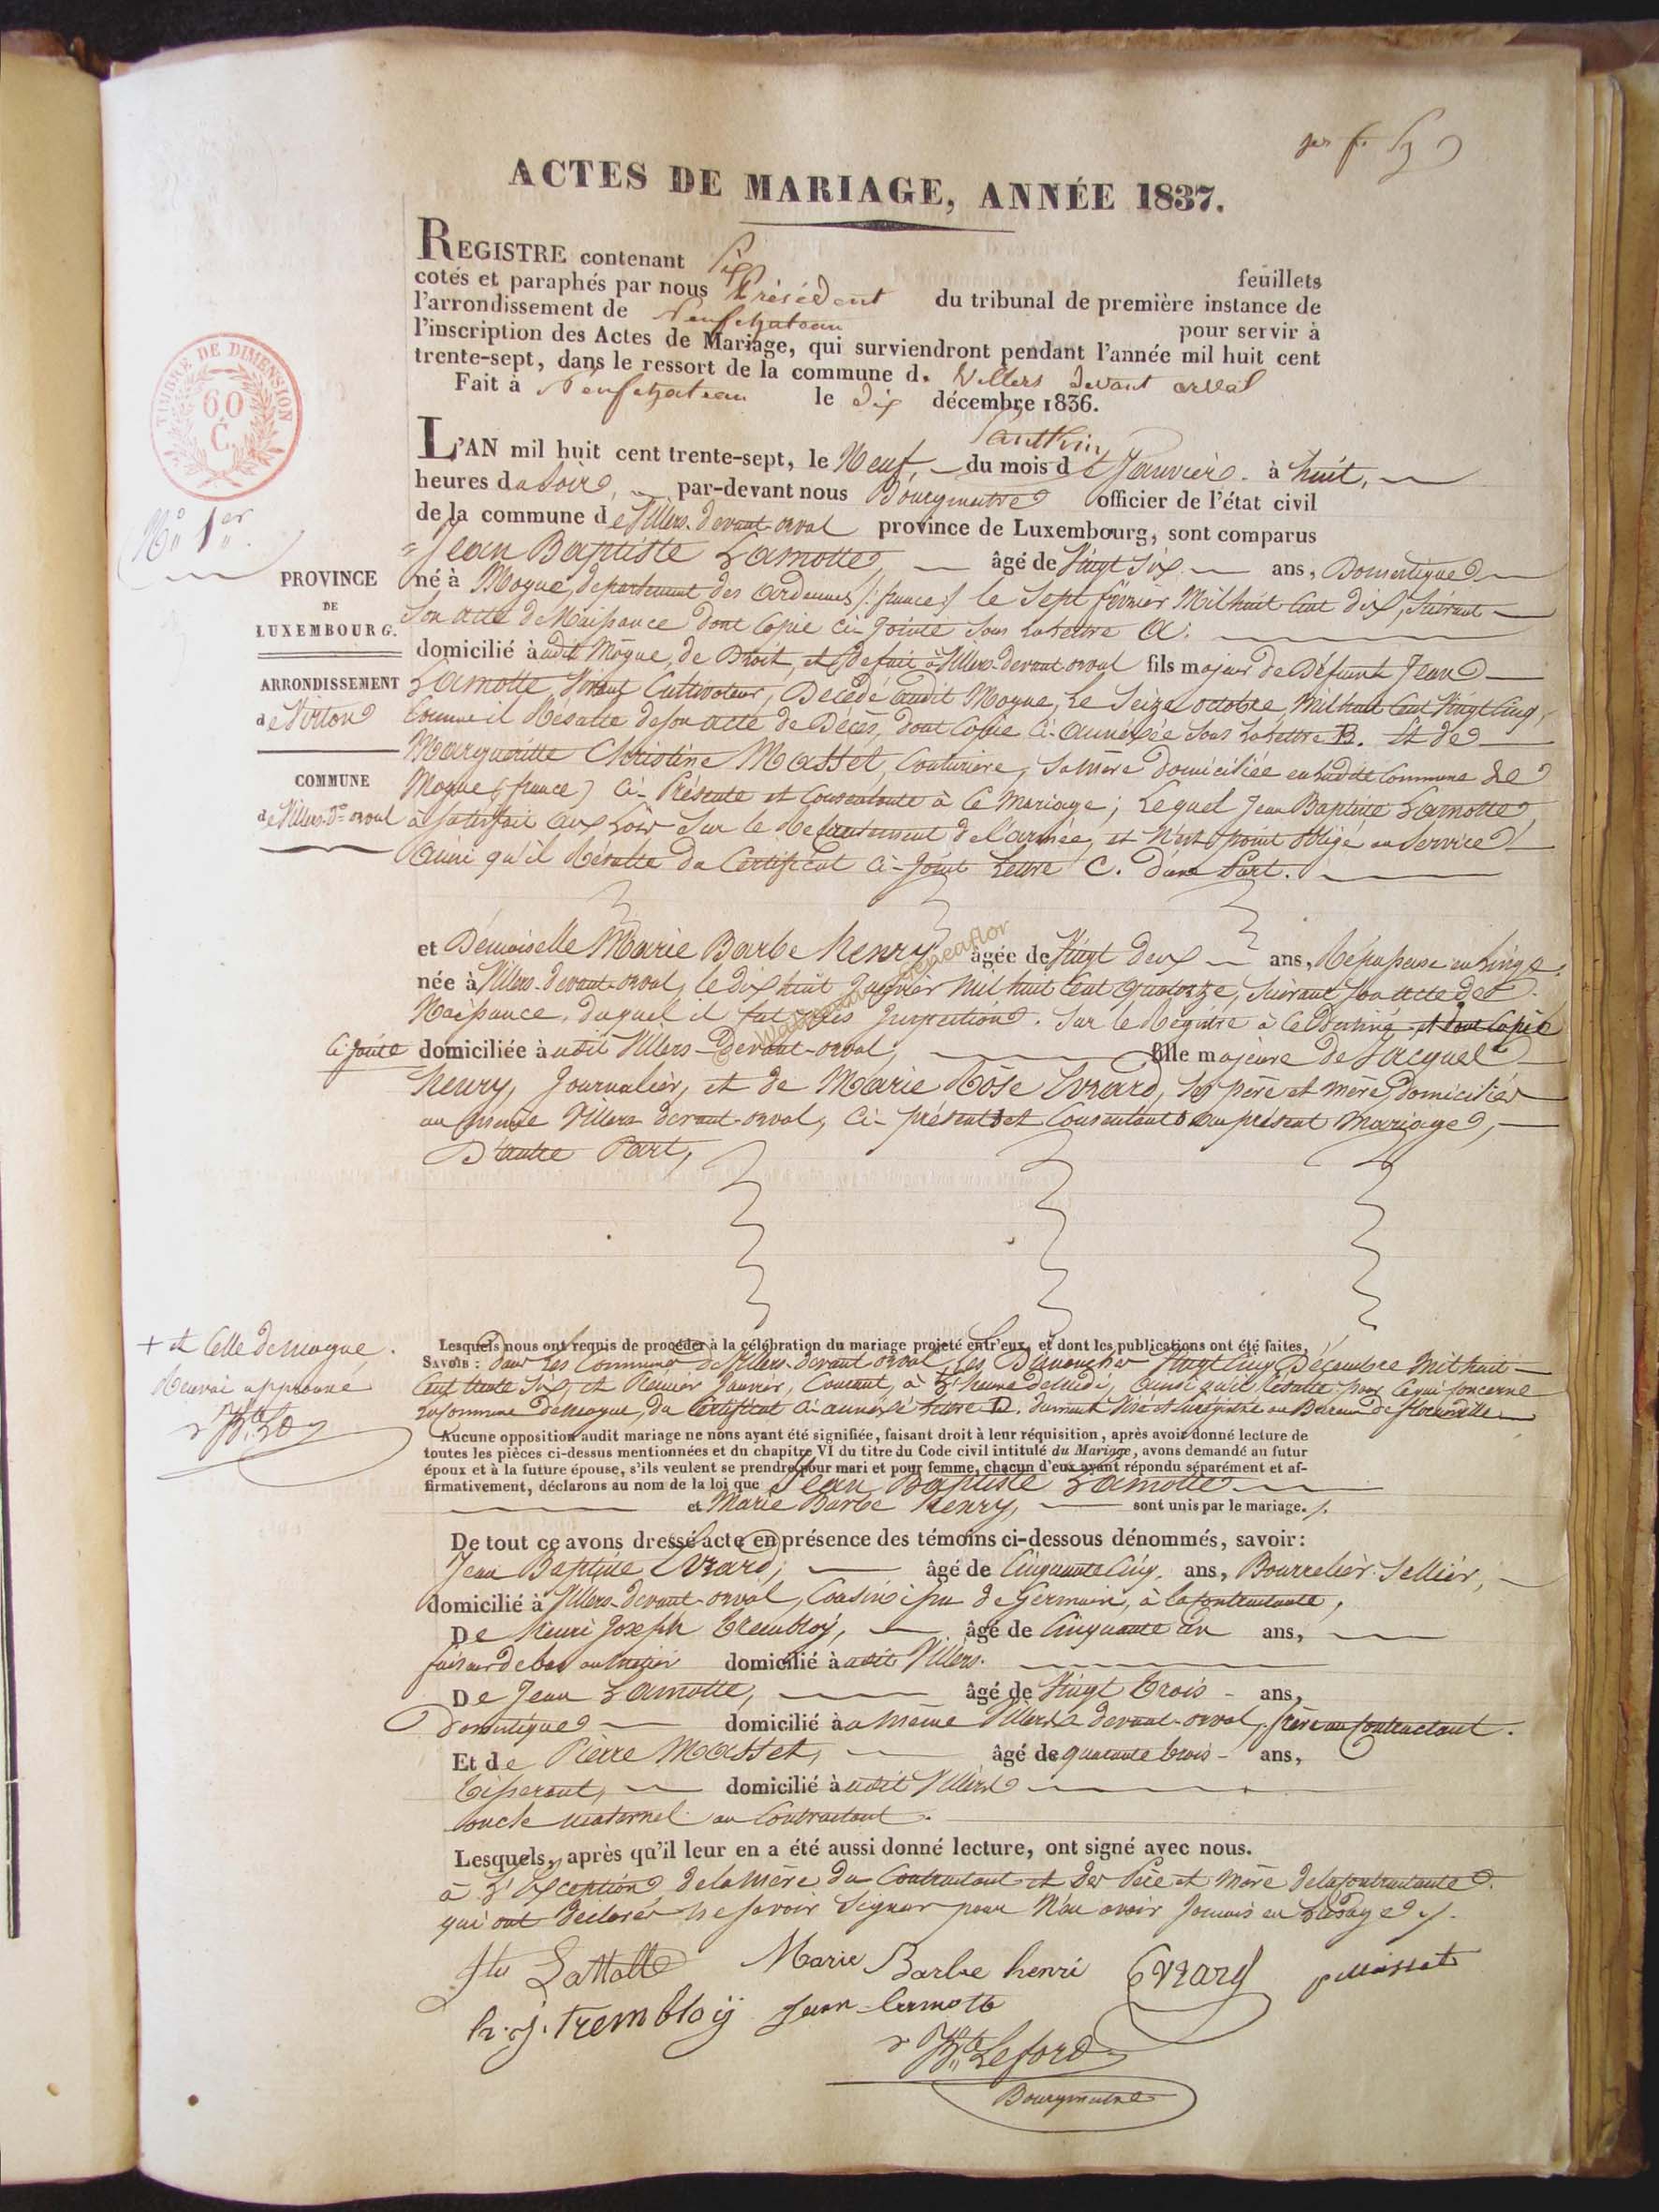 ACTES DE MARIAGE, ANNÉE 1837.
REGISTRE contenant Six feuillets
cotés et paraphés par nous Président du tribunal de première instance de
l'arrondissement de Neufchateau pour servir à
l'inscription des Actes de Mariage, qui surviendront pendant l'année mil huit cent
trente-sept, dans le ressort de la commune d. Villers devant orval
Fait à Neufchateau le dix décembre 1836.
TIMBRE DE DIMENSION
60
C.
L'AN mil huit cent trente-sept, le Neuf du mois de Janvier à huit,
heures du Soir, par-devant nous Bourgmestre officier de l'état civil
de la commune de Villers-devant-orval province de Luxembourg, sont comparus
N° 1er
PROVINCE
DE
LUXEMBOURG.
ARRONDISSEMENT
de Virton
COMMUNE
de Villers-Dt-orval
Jean Baptiste Lamotte, âgé de Vingt Six ans, Domestique
né à Mogue, département des Ardennes /: france :/ le Sept février Mil huit Cent dix, Suivant
Son acte de Naissance dont Copie Ci-Jointe Sous La lettre A.
domicilié à udit Mogue, de Droit, et de fait à Villers-devant-orval fils majeur de Défunt Jean
Lamotte, vivant Cultivateur, Décédé audit Mogue, Le Seize octobre Mil huit Cent Vingt Cinq,
Comme il Résulte de son acte de Décès, dont Copie Ci-annexée Sous La lettre B. Et de
Margueritte Christine Masset, Couturière, Sa mère domiciliée en ladite Commune de
Mogue (france) Ci-Présente et Consentante à Ce Mariage; Lequel Jean Baptiste Lamotte,
à Satisfait aux Loix Sur le Recrutement de l'armée, et N'est point obligé au Service
Ainsi qu'il Résulte du Certificat Ci-Joint Lettre C. d'une Part.
et Demoiselle Marie Barbe Henry âgée de Vingt deux ans, Répasseuse en Linge,
née à Villers-devant-orval, le dix huit Janvier Mil huit Cent quatorze, Suivant Son acte de
Naissance, duquel il fut pris Inspection. Sur le Registre à Ce Destiné et dont Copie
Ci Jointe domiciliée à udit Villers-devant-orval, fille majeure de Jacques
Henry, Journalier, et de Marie Rôse Evrard, Ses père et mère Domiciliés
au même Villers devant-orval, Ci-présents et Consentants au présent Mariage,
D'autre Part,
Lesquels nous ont requis de procéder à la célébration du mariage projeté entr'eux, et dont les publications ont été faites,
SAVOIR: dans les Communes de Villers-devant orval Les Dimanches Vingt Cinq Décembre Mil huit
Cent trente Six, et Premier Janvier, Courant, à L'heure de Midi, Ainsi qu'il Résulte pour Ce qui Concerne
La Commune de Mogue, du Certificat Ci-annexé Lettre D. dument Visé et Enregistré au Bureau de florenville
+ et Celle de Mogue.
Renvoi approuvé
Aucune opposition audit mariage ne nous ayant été signifiée, faisant droit à leur réquisition, après avoir donné lecture de
toutes les pièces ci-dessus mentionnées et du chapitre VI du titre du Code civil intitulé du Mariage, avons demandé au futur
époux et à la future épouse, s'ils veulent se prendre pour mari et pour femme, chacun d'eux ayant répondu séparément et af-
firmativement, déclarons au nom de la loi que Jean Baptiste Lamotte
et Marie Barbe Henry, sont unis par le mariage.
De tout ce avons dressé acte en présence des témoins ci-dessous dénommés, savoir:
Jean Baptiste Evrard, âgé de Cinquante Cinq ans, Bourrelier-Sellier,
domicilié à Villers-devant-orval, Cousin issu de Germain, à la Contractante,
De Henri Joseph Trembloy, âgé de Cinquante un ans,
faiseur de bas au métier domicilié à udit Villers.
De Jean Lamotte, âgé de Vingt Trois ans,
Domestique domicilié à u même Villers devant-orval, frère au Contractant.
Et de Pierre Masset, âgé de quarante trois ans,
Tisserant, domicilié à udit Villers
oncle maternel au Contractant.
Lesquels, après qu'il leur en a été aussi donné lecture, ont signé avec nous.
à L'Exception de la Mère du Contractant et des Père et Mère de la Contractante
qui ont déclarés Ne Savoir Signer pour N'en avoir Jamais eu L'usage.
Marie Barbe henri Evrard pMasset
h. j. Trembloÿ Jean-lamotte
Jn Bte Leford
Bourgmestre